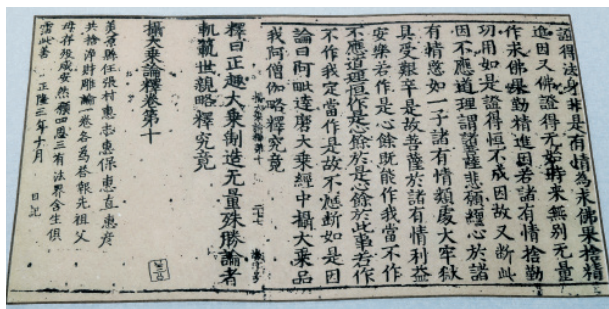 證得法身非是有情為求佛果捨精
進因又佛證得无始時來無別无量
作求佛果勤精進因若諸有情捨勤
功用如是證得恒不成因故又斷此
因不應道理謂諸菩薩悲願纏心於諸
有情慜如一子諸有情類處大牢獄
具受艱辛是故菩薩於諸有情利益
安樂若作是心餘既能作我當不作
不應道理恒作是心餘於是心餘於此事若作
不作我定當作是故不應斷如是因
論曰阿毗達磨大乘經中攝大乘品
我阿僧伽略釋究竟
攝大乘論釋第十
釋曰正趣大乘制造无量殊勝論者
軌範世親略釋究竟
攝大乘論釋卷第十
美原縣任張村惠志惠保惠直惠彦
共捨淨財雕論一卷各為荅報先祖父
母存歿咸安然願四恩三有法界含生俱
霑此善 正隆三年十月 日記